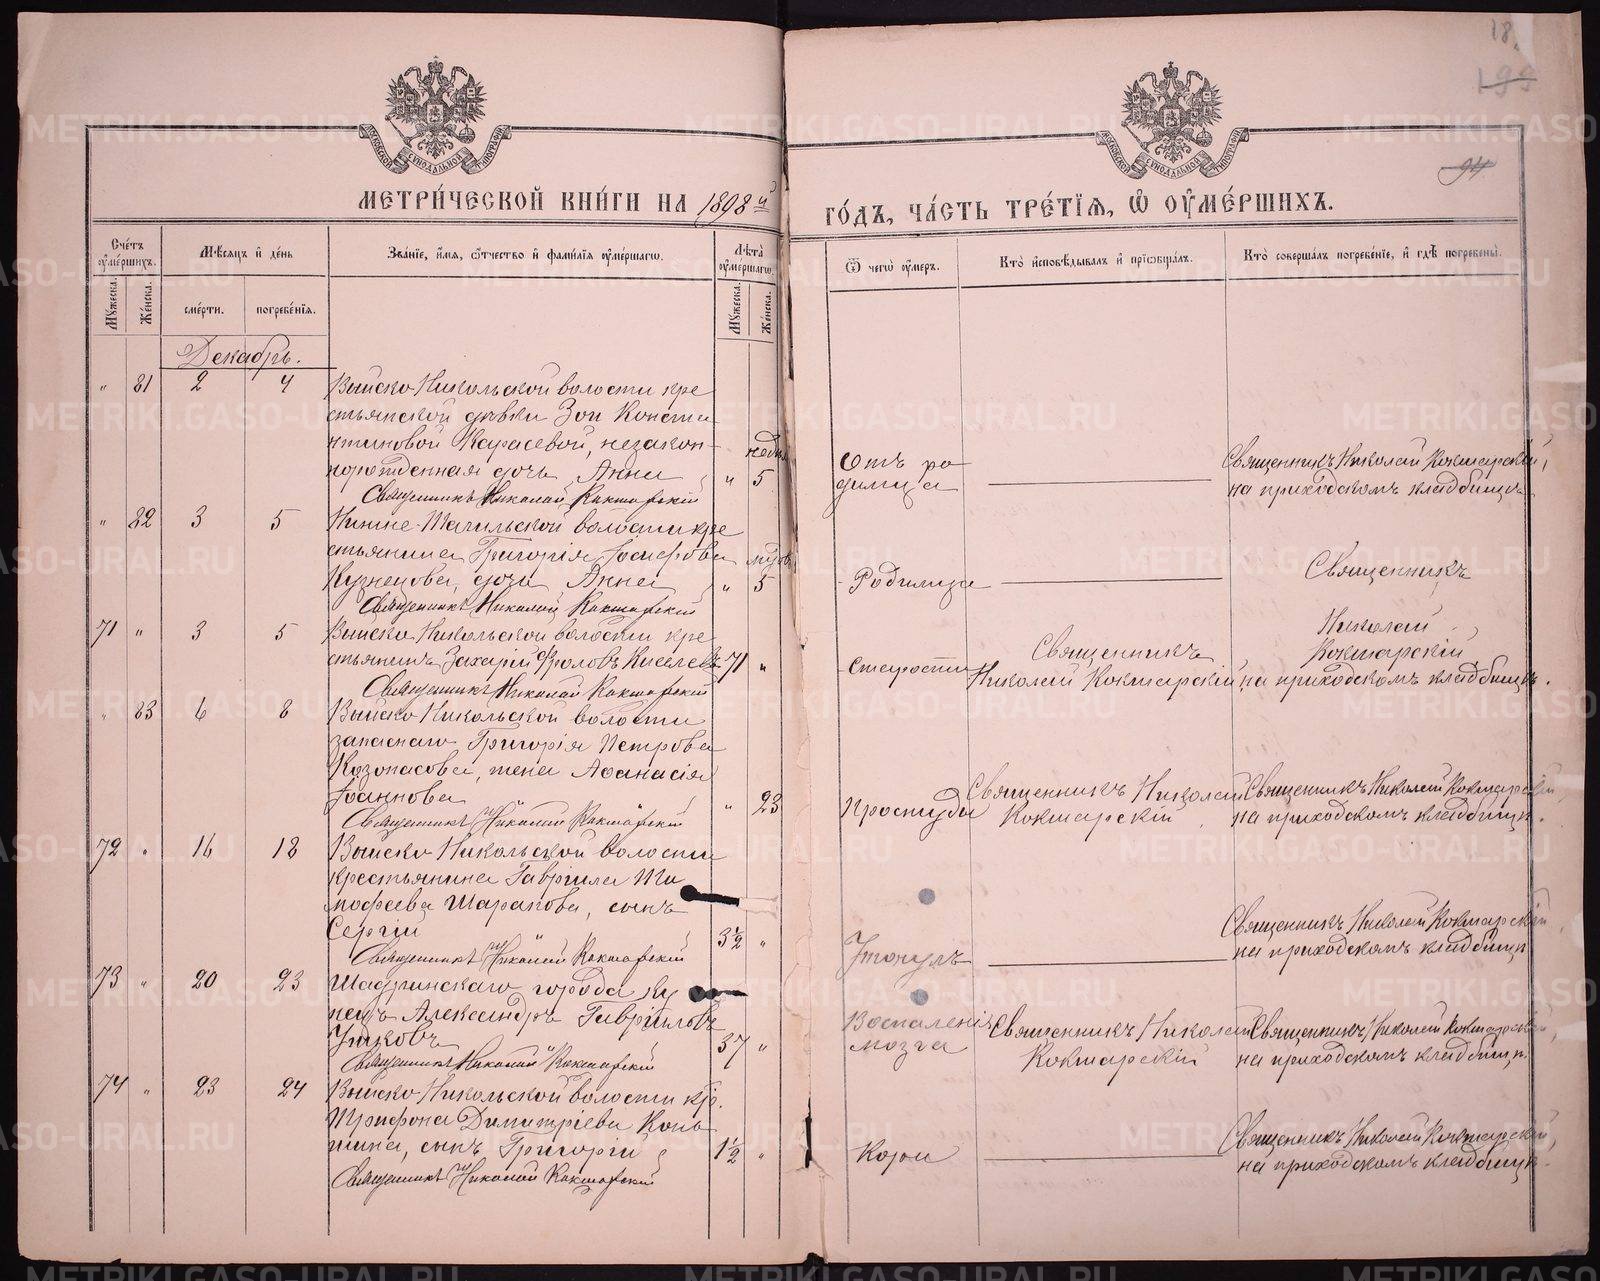 18.
199
94
МЕТРИ́ЧЕСКОЙ КНИ́ГИ НА 1898 й
ГО́ДЪ, ЧА́СТЬ ТРЕ́ТІѦ, Ѿ ОУМЕ́РШИХЪ.
Сче́тъ оуме́ршихъ.
Мѣ́сяцъ и де́нь
Зва́нїе, и́мя, о́тчество и фами́лїя оуме́ршагѡ.
Лѣ́та оуме́ршагѡ.
Ѿ чегѡ̀ оу́меръ.
Кто̀ исповѣ́дывалъ и прїѡбща́лъ.
Кто̀ соверша́лъ погребе́нїе, и гдѣ̀ погребены̀.
Мꙋ́жеска.
Же́нска.
сме́рти.
погребе́нїя.
Мꙋ́жеска.
Же́нска.
Декабрь.
" 81 2 4 Выйско-Никольской волости кре
стьянской дѣвки Зои Консти
нтиновой Карасевой, незакон-
норожденная дочь Анна " 5
Священникъ Николай Кокшарскій
Отъ ро
димца
Священникъ Николай Кокшарскій,
на приходскомъ кладбищѣ.
" 82 3 5 Нижне-Тагильской волости кре
стьянина Григорія Іосифова
Кузнецова, дочь Анна " 5
Священникъ Николай Кокшарскій
Родимца
Священникъ
71 " 3 5 Выйско Никольской волости кре
стьянинъ Захарій Фролов Киселевъ 71 "
Священникъ Николай Кокшарскій
Старости
Священникъ
Николай Кокшарскій
Николай
Кокшарскій
на приходскомъ кладбищѣ.
" 83 6 8 Выйско Никольской волости
запаснаго Григорія Петрова
Козопасова, жена Афанасія
Іоаннова " 23
Священникъ Николай Кокшарскій
Простуды
Священникъ Николай
Кокшарскій
Священникъ Николай Кокшарскій,
на приходскомъ кладбищѣ.
72 " 16 18 Выйско Никольской волости
крестьянина Гавріила Ти
мофеева Шарапова, сынъ
Сергій 3½ "
Священникъ Николай Кокшарскій
Утонулъ
Священникъ Николай Кокшарскій
на приходскомъ кладбищѣ
73 " 20 23 Шадринскаго города ку
пецъ Александръ Гавріиловъ
37 "
Священникъ Николай Кокшарскій
Воспаленія
мозга
Священникъ Николай
Кокшарскій
Священникъ Николай Кокшарскій,
на приходскомъ кладбищѣ.
74 " 23 24 Выйско Никольской волости кр.
Трифона Димитріева Конь
шина, сынъ Григорій 1½ "
Священникъ Николай Кокшарскій
Кори
Священникъ Николай Кокшарскій,
на приходскомъ кладбищѣ.
METRIKI.GASO-URAL.RU